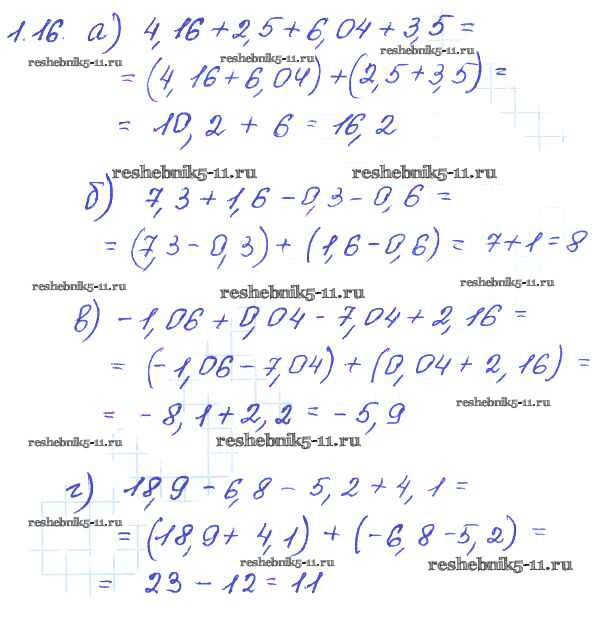 1.16. а) 4,16+2,5+6,04+3,5=
reshebnik5-11.ru reshebnik5-11.ru reshebnik5-11.ru
=(4,16+6,04)+(2,5+3,5)=
= 10,2 + 6 = 16,2
reshebnik5-11.ru reshebnik5-11.ru
б) 7,3+1,6-0,3-0,6=
=(7,3-0,3)+(1,6-0,6)= 7+1=8
reshebnik5-11.ru reshebnik5-11.ru reshebnik5-11.ru
в) -1,06+0,04-7,04+2,16=
=(-1,06-7,04)+(0,04+2,16)=
reshebnik5-11.ru
= -8,1+2,2=-5,9
reshebnik5-11.ru reshebnik5-11.ru
г) 18,9-6,8-5,2+4,1=
reshebnik5-11.ru
=(18,9+4,1)+(-6,8-5,2)=
reshebnik5-11.ru reshebnik5-11.ru
= 23-12=11